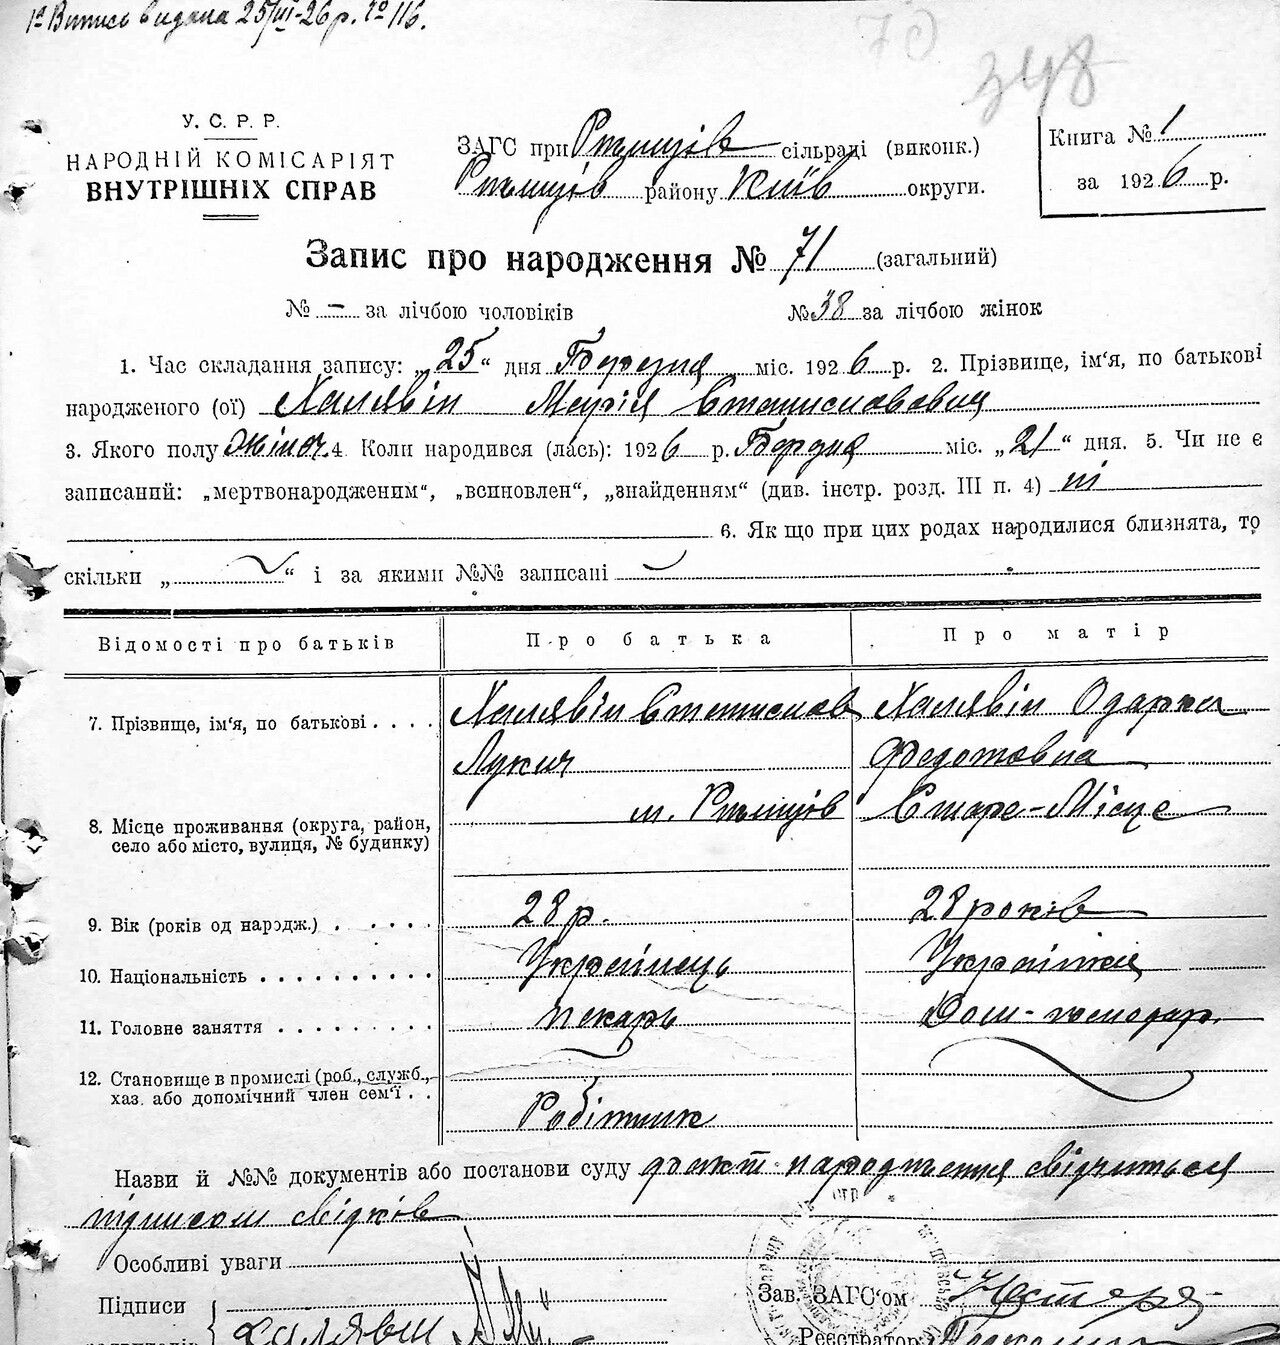 1й Випись видана 25/III-26 р. № 116.
70
348
У. С. Р. Р.
НАРОДНІЙ КОМІСАРІЯТ
ВНУТРІШНІХ СПРАВ
ЗАГС при Ртищів сільраді (виконк.)
Ртищів району Київ округи.
Книга № 1
за 1926 р.
Запис про народження № 71 (загальний)
№ - за лічбою чоловіків № 38 за лічбою жінок
1. Час складання запису: „25“ дня Березня міс. 1926 р. 2. Прізвище, ім‘я, по батькові
народженого (ої) Халявін Марія Станиславовна
3. Якого полу жіноч. 4. Коли народився (лась): 1926 р. Бердня міс. „21“ дня. 5. Чи не є
записаний: „мертвонародженим“, „всиновлен“, „знайденням“ (див. інстр. розд. III п. 4) ні
6. Як що при цих родах народилися близнята, то
скільки „ “ і за якими №№ записані
Відомості про батьків Про батька Про матір
7. Прізвище, ім‘я, по батькові . . . . Халявін Станислав Халявін Одарка
Лукич Федотовна
8. Місце проживання (округа, район, м. Ртищів Старе-Місце
село або місто, вулиця, № будинку)
9. Вік (років од народж.) . . . . . 28 р. 28 років
10. Національність . . . . . . . . . . Українець Українка
11. Головне заняття . . . . . . . . . пекарь Дом-господар.
12. Становище в промислі (роб., служб.,
хаз. або допомічний член сем‘ї . . Робітник
Назви й №№ документів або постанови суду факт народження свідчиться
підписом свідків
Особливі уваги
Підписи
Халявин
Зав. ЗАГС‘ом
Реєстратор